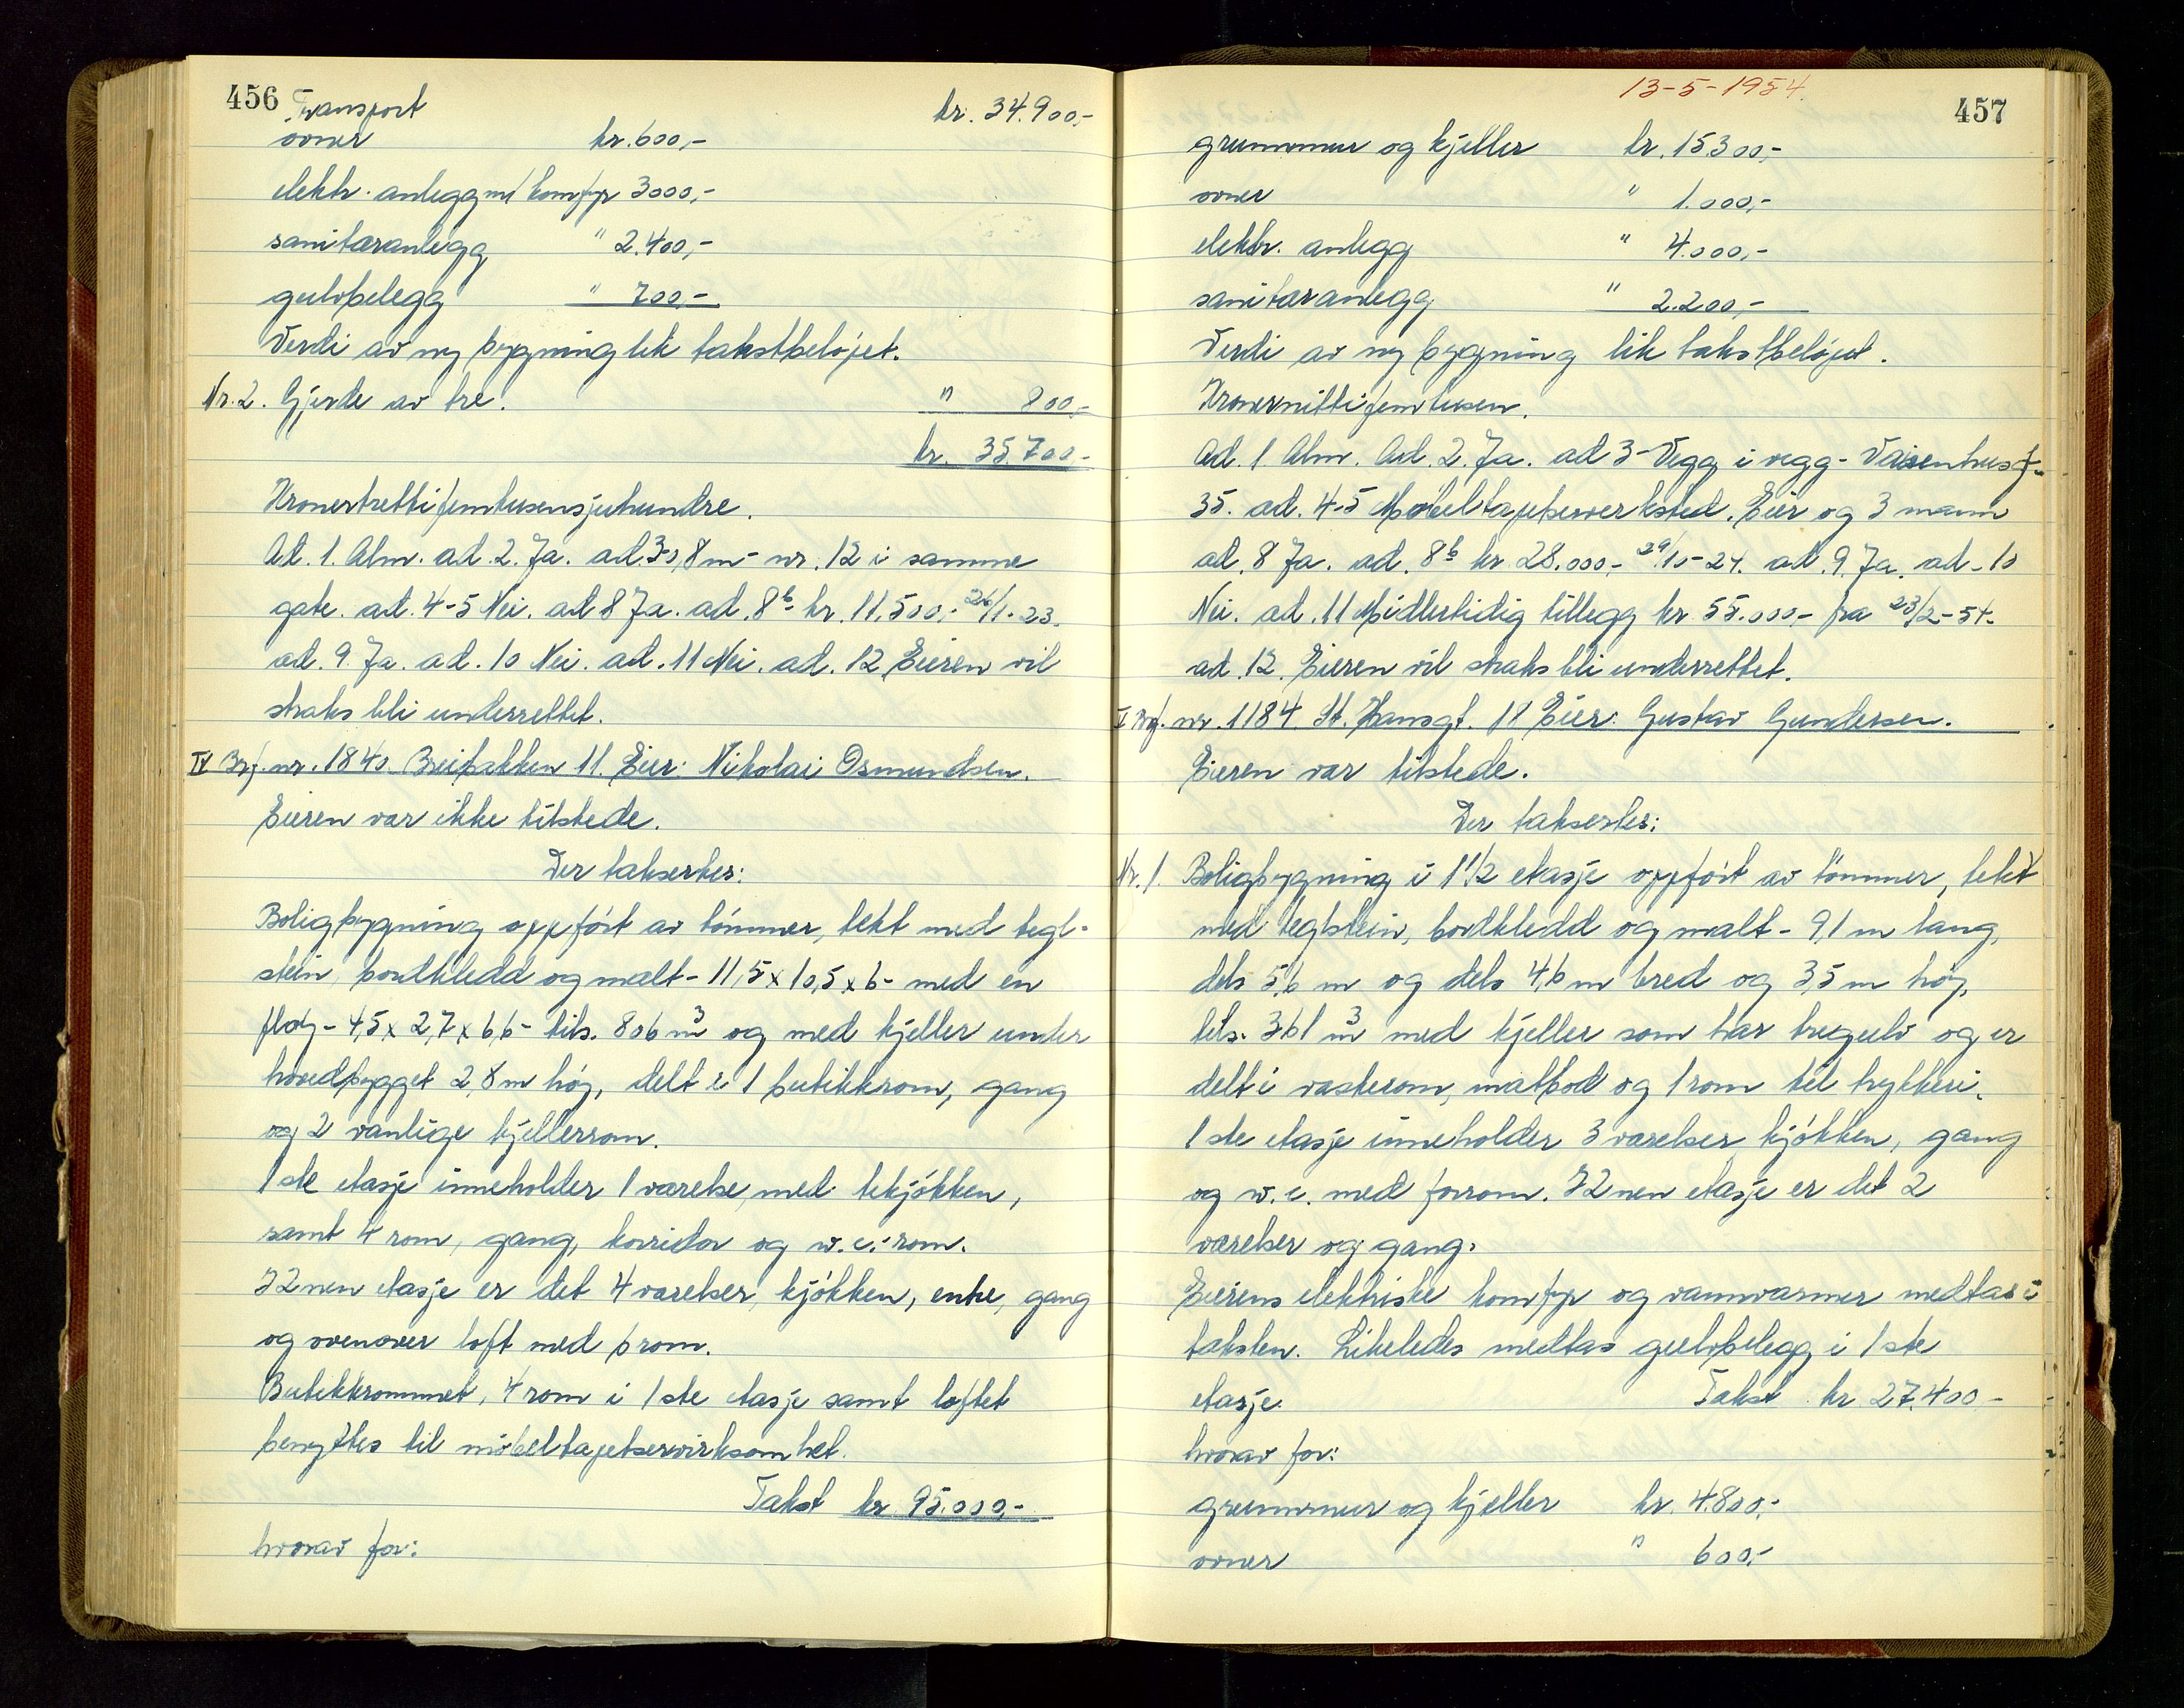 456 Transport kr. 34.900,-
ovner kr. 600,-
elektr. anlegg m/ komfyr 3000,-
sanitæranlegg " 2.400,-
gulvbelegg " 700,-
Verdi av ny bygning lik takstbeløpet.
Nr. 2. Gjerde av tre. " 800,-
kr. 35.700,-
Kronertrettifemtusensjuhundre.
Ad. 1. Alm. ad. 2. Ja. ad. 3-0,8 m - nr. 12 i samme
gate. ad. 4-5 Nei. ad 8 Ja. ad. 8b- kr. 11.500,- 26/1-23.
ad. 9. Ja. ad. 10 Nei. ad. 11 Nei. ad. 12. Eieren vil
straks bli underrettet.
IV Brf. nr. 1840. Breibakken 11. Eier: Nikolai Osmundsen.
Eieren var ikke tilstede.
Der taksertes:
Boligbygning oppført av tømmer, tekt med tegl-
stein, bordkledd og malt - 11,5 x 10,5 x 6 - med en
fløy - 4,5 x 2,7 x 6,6 - tils. 806 m3 og med kjeller under
hovedbygget 2,8 m høy, delt i 1 butikkrom, gang
og 2 vanlige kjellerrom.
1ste etasje inneholder 1 værelse med tekjøkken,
samt 4 rom, gang, korridor og w.c. rom.
I 2nen etasje er det 4 værelser, kjøkken, entre, gang
og ovenover loft med 6 rom.
Butikkrommet, 4 rom i 1ste etasje samt loftet
benyttes til møbeltapetservirksomhet.
Takst kr. 95.000,-
hvorav for:
13-5-1954.
457
grunnmur og kjeller kr. 15.300,-
ovner " 1.000,-
elektr. anlegg " 4.000,-
sanitæranlegg " 2.200,-
Verdi av ny bygning lik takstbeløpet.
Kronernittifemtusen.
Ad. 1. Alm. Ad. 2. Ja. ad 3 - Vegg i vegg - Vaisenhusg.
35. ad. 4-5 Møbeltapetserverksted. Eier og 3 mann
ad. 8 Ja. ad. 8b kr. 28.000,- 29/10-24. ad. 9. Ja. ad - 10
Nei. ad. 11 Midlertidig tillegg kr 55.000,- fra 23/2-54.
ad. 12. Eieren vil straks bli underrettet.
V Brf. nr. 1184. St. Hansgt. 18 Eier: Gustav Gundersen.
Eieren var tilstede.
Der taksertes:
Nr. 1. Boligbygning i 1 1/2 etasje oppført av tømmer, tekt
med teglstein, bordkledd og malt - 9,1 m lang,
dels 5,6 m og dels 4,6 m bred og 3,5 m høy,
tils. 361 m3 med kjeller som har tregulv og er
delt i vaskerom, matbod og 1 rom til trykkeri.
1ste etasje inneholder 3 værelser, kjøkken, gang
og w.c. med forrom. I 2nen etasje er det 2
værelser og gang.
Eierens elektriske komfyr og vannvarmer medtas i
taksten. Likeledes medtas gulvbelegg i 1ste
etasje. Takst kr 27.400,-
hvorav for:
grunnmur og kjeller kr. 4.800,-
ovner " 600,-